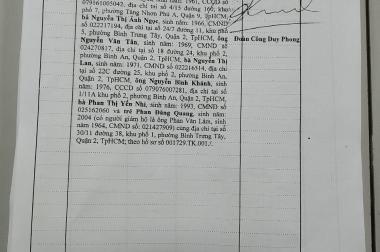 079161005042, địa chỉ tại số 4/15 đường 160, khu
phố 7, phường Tăng Nhơn Phú A, Quận 9, TpHCM,
bà Nguyễn Thị Ánh Ngọc, sinh năm: 1966, CMND
số 022217194, địa chỉ tại số 24/7 đường 11, khu phố
5, phường Bình Trưng Tây, Quận 2, TpHCM, ông
Nguyễn Văn Tân, sinh năm: 1969, CMND số
024270817, địa chỉ tại số 18 đường 24, khu phố 2,
phường Bình An, Quận 2, TpHCM, bà Nguyễn Thị
Lan, sinh năm: 1971, CMND số 022216514, địa chỉ
tại số 22C đường 25, khu phố 2, phường Bình An,
Quận 2, TpHCM, ông Nguyễn Bình Khánh, sinh
năm: 1976, CCCD số 079076007281, địa chỉ tại số
1/11A khu phố 2, phường Bình An, Quận 2, TpHCM,
bà Phan Thị Yến Nhi, sinh năm: 1993, CMND số
025162060 và trẻ Phan Đăng Quang, sinh năm:
2004 (có người giám hộ là ông Phan Văn Lâm, sinh
năm 1964, CMND số: 021427909) cùng địa chỉ tại số
30/11 đường 38, khu phố 1, phường Bình Trưng Tây,
Quận 2, TpHCM; theo hồ sơ 001729.TK.001./.
Đoàn Công Duy Phong